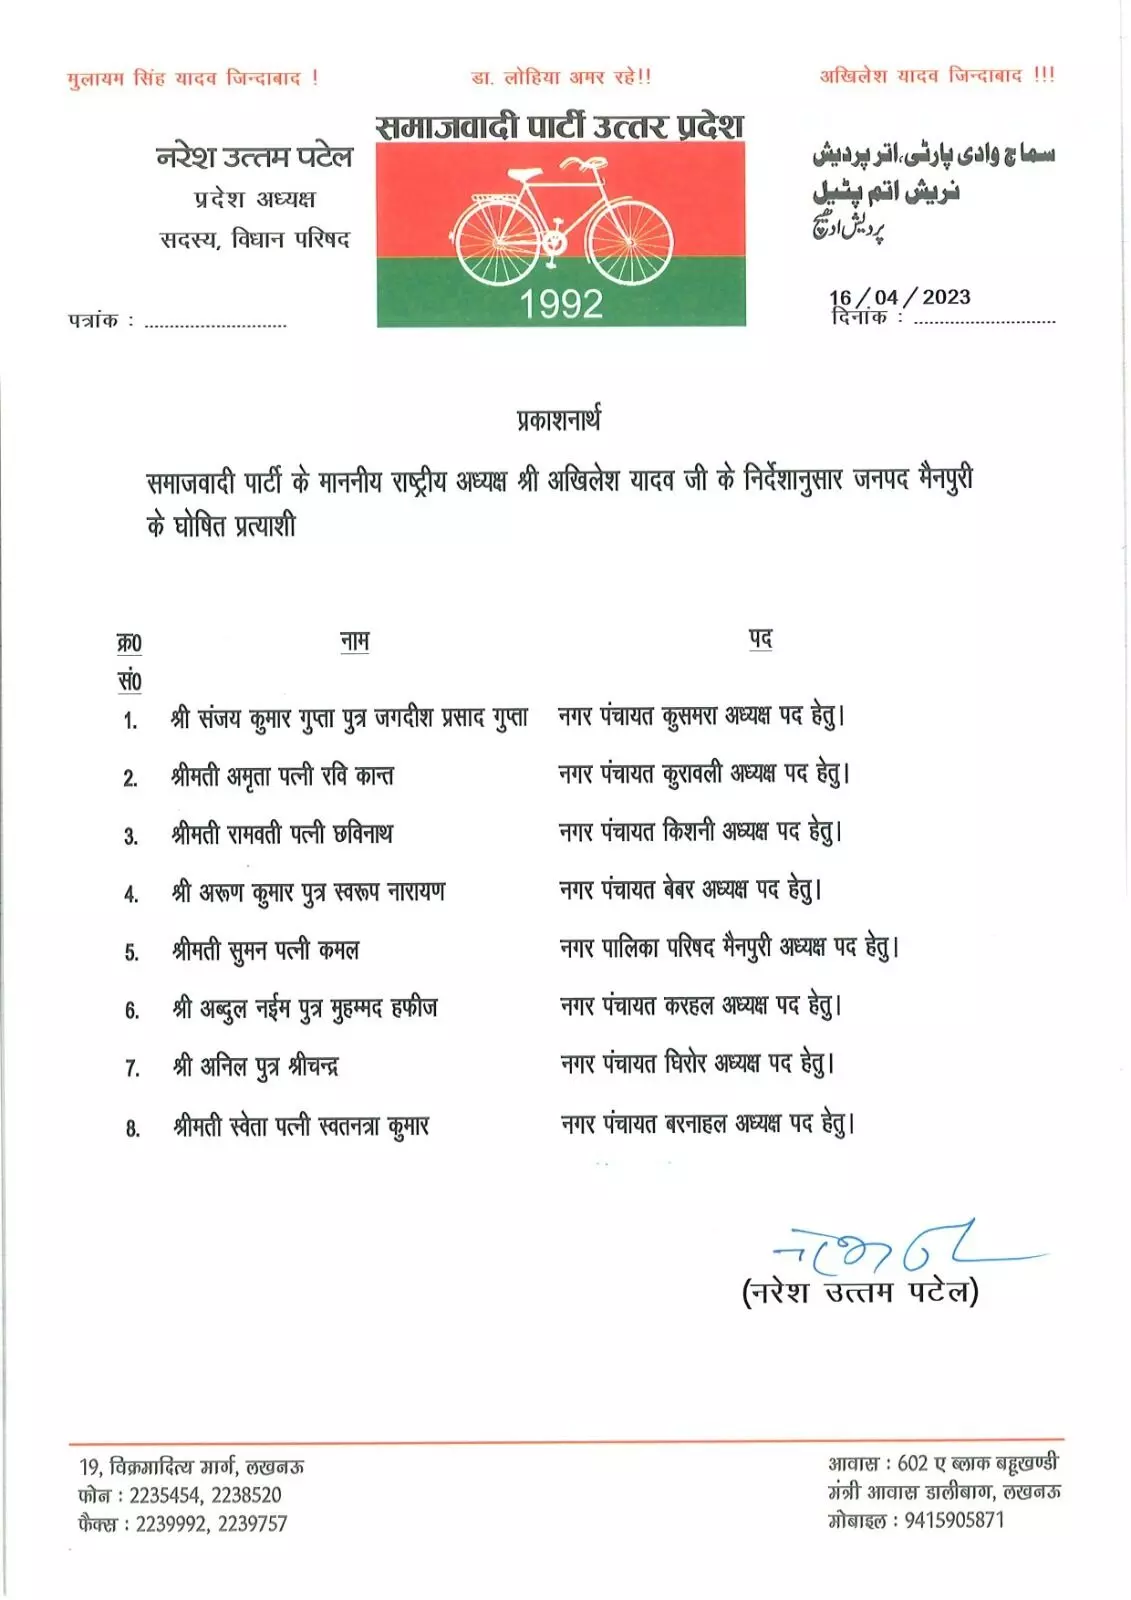 मुलायम सिंह यादव जिन्दाबाद ! डा. लोहिया अमर रहे!! अखिलेश यादव जिन्दाबाद !!!
समाजवादी पार्टी उत्तर प्रदेश
नरेश उत्तम पटेल
प्रदेश अध्यक्ष
सदस्य, विधान परिषद
1992
سماج وادی پارٹی، اتر پردیش
نریش اتم پٹیل
پردیش ادھیکچھ
16/04/2023
पत्रांक : ............................ दिनांक : ............................
प्रकाशनार्थ
समाजवादी पार्टी के माननीय राष्ट्रीय अध्यक्ष श्री अखिलेश यादव जी के निर्देशानुसार जनपद मैनपुरी
के घोषित प्रत्याशी
क्र0 नाम पद
सं0
1. श्री संजय कुमार गुप्ता पुत्र जगदीश प्रसाद गुप्ता नगर पंचायत कुसमरा अध्यक्ष पद हेतु।
2. श्रीमती अमृता पत्नी रवि कान्त नगर पंचायत कुरावली अध्यक्ष पद हेतु।
3. श्रीमती रामवती पत्नी छविनाथ नगर पंचायत किशनी अध्यक्ष पद हेतु।
4. श्री अरूण कुमार पुत्र स्वरूप नारायण नगर पंचायत बेबर अध्यक्ष पद हेतु।
5. श्रीमती सुमन पत्नी कमल नगर पालिका परिषद मैनपुरी अध्यक्ष पद हेतु।
6. श्री अब्दुल नईम पुत्र मुहम्मद हफीज नगर पंचायत करहल अध्यक्ष पद हेतु।
7. श्री अनिल पुत्र श्रीचन्द्र नगर पंचायत घिरोर अध्यक्ष पद हेतु।
8. श्रीमती स्वेता पत्नी स्वतनत्रा कुमार नगर पंचायत बरनाहल अध्यक्ष पद हेतु।
(नरेश उत्तम पटेल)
19, विक्रमादित्य मार्ग, लखनऊ
फोन : 2235454, 2238520
फैक्स : 2239992, 2239757
आवास : 602 ए ब्लाक बहूखण्डी
मंत्री आवास डालीबाग, लखनऊ
मोबाइल : 9415905871